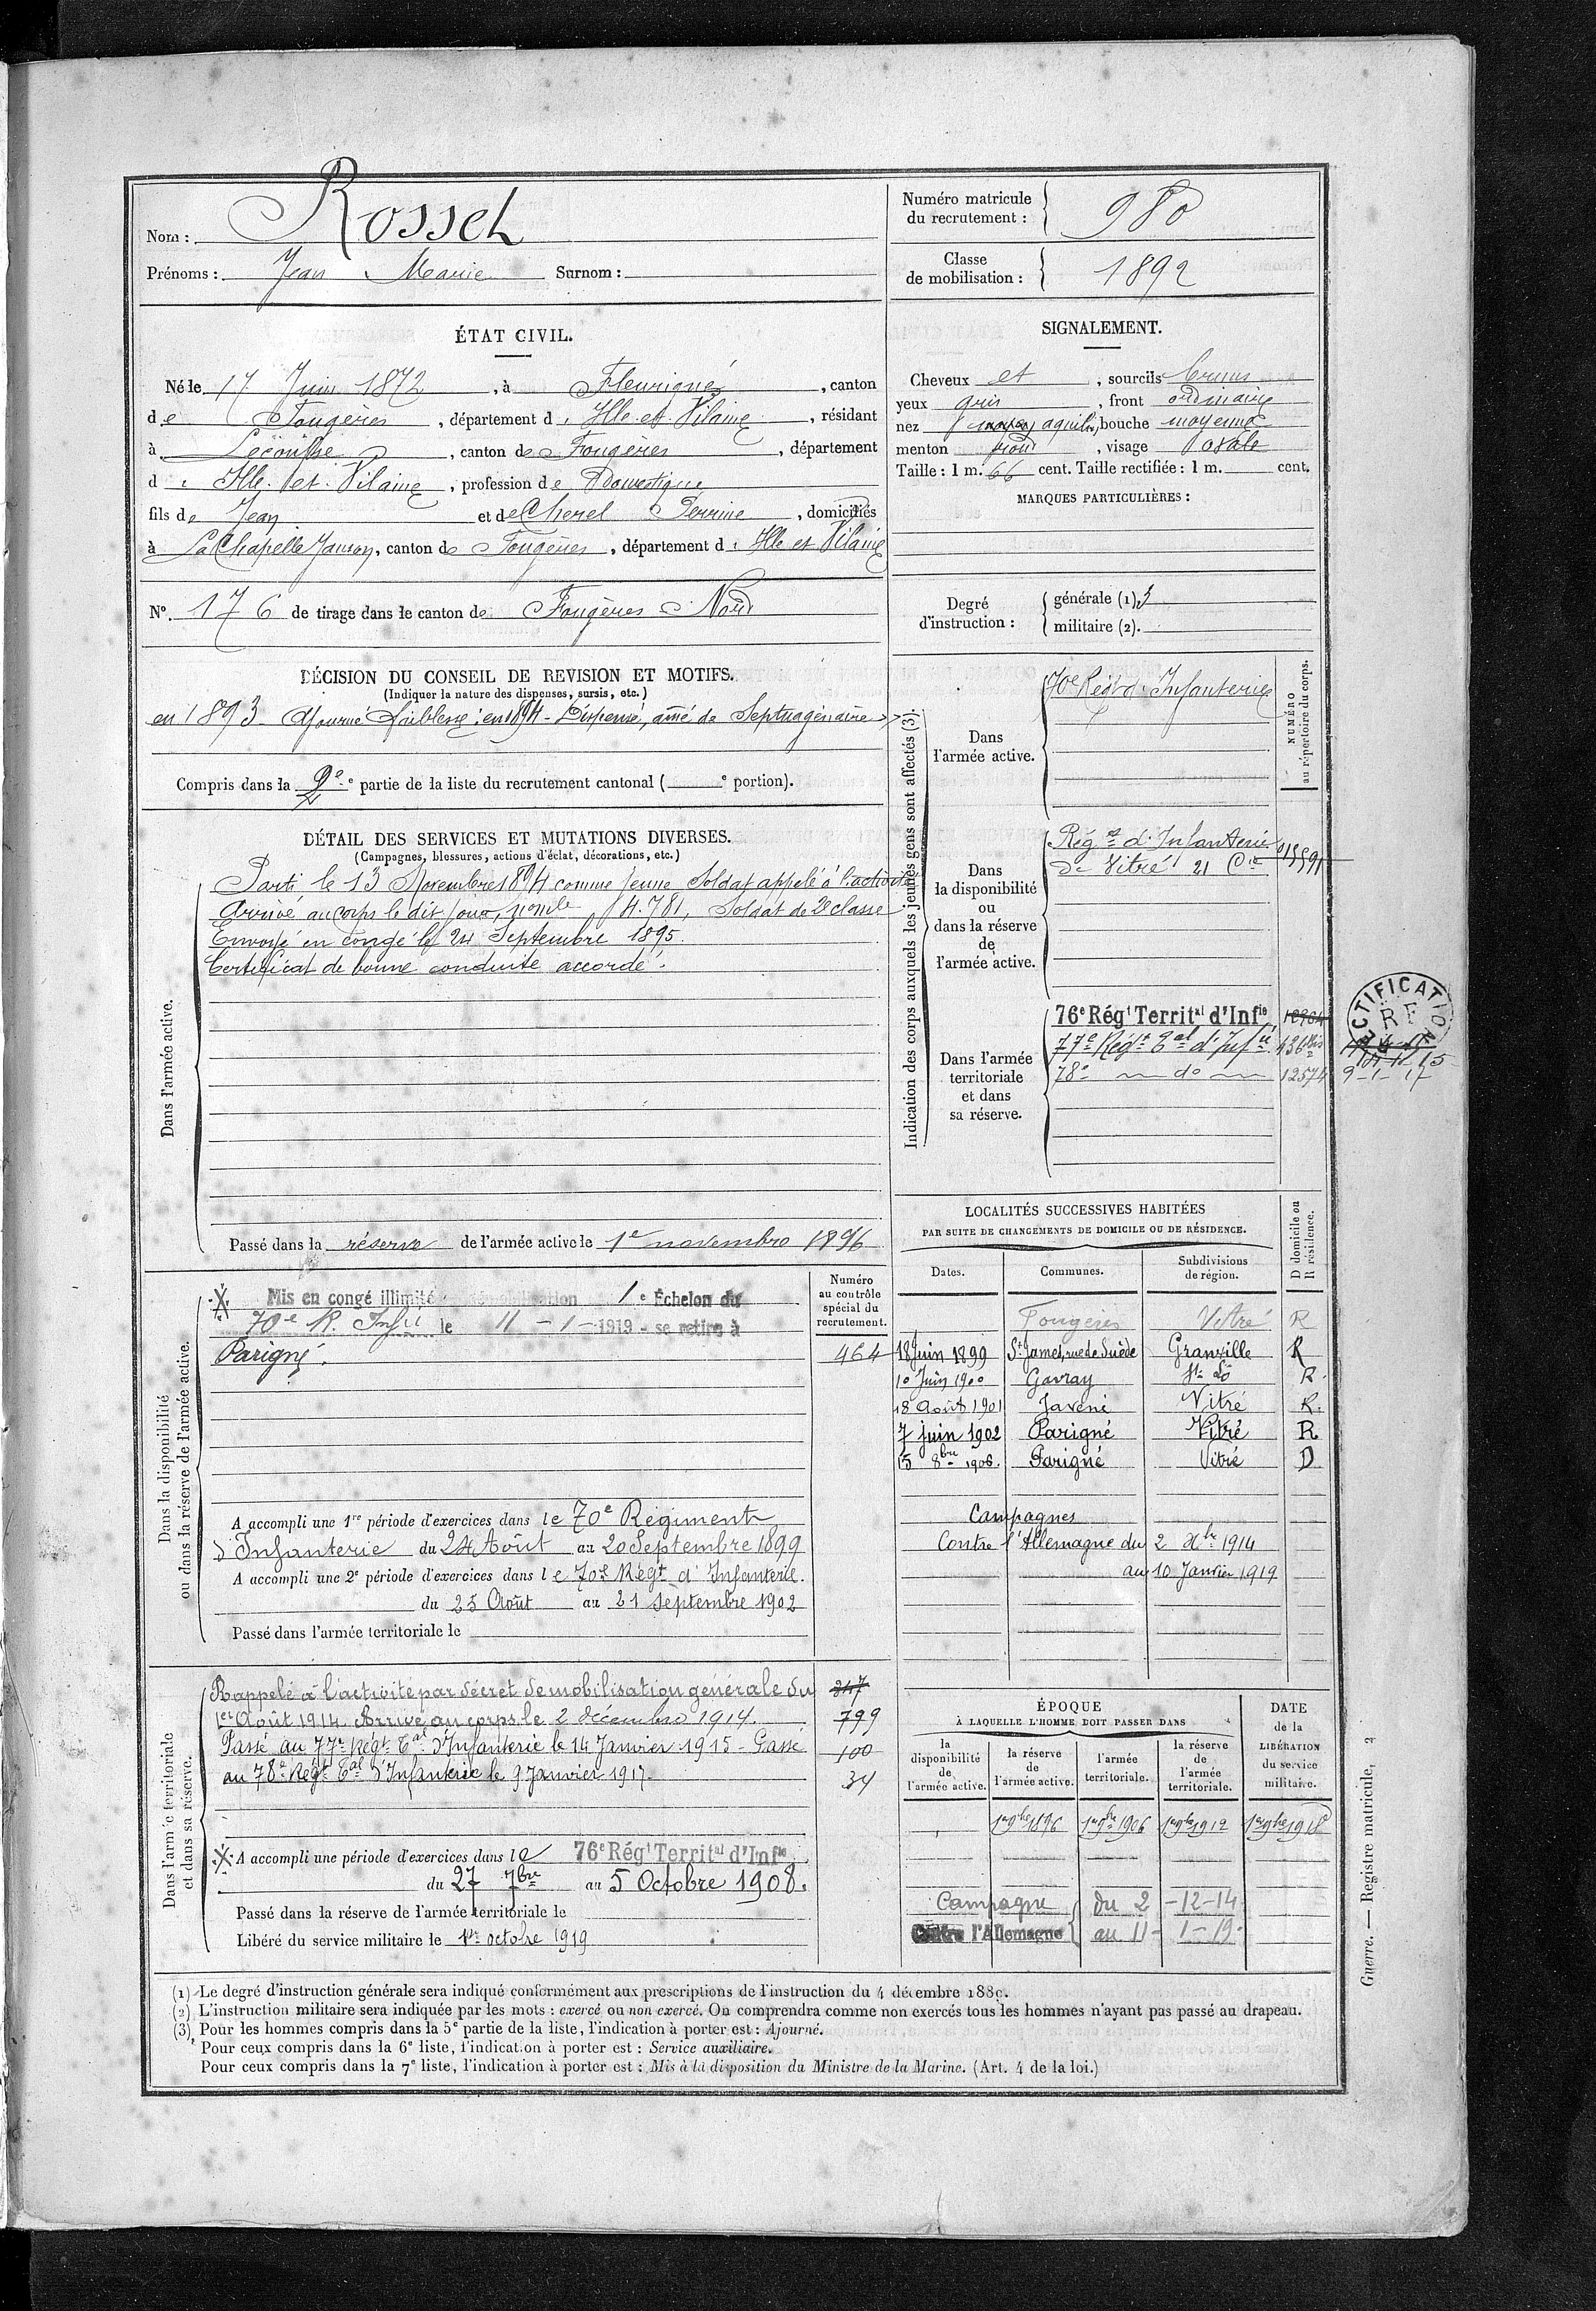 Nom : Rossel
Prénoms : Jean Marie Surnom :
Numéro matricule du recrutement : 980
Classe de mobilisation : 1892
ÉTAT CIVIL.
Né le 17 Juin 1872, à Fleurigné, canton
de Fougères, département d'Ille-et-Vilaine, résidant
à Lécousse, canton de Fougères, département
d'Ille-et-Vilaine, profession de Domestique
fils de Jean et de Cherel Perrine, domiciliés
à La Chapelle Janson, canton de Fougères, département d'Ille et Vilaine
N° 176 de tirage dans le canton de Fougères Nord
SIGNALEMENT.
Cheveux et, sourcils bruns
yeux gris, front ordinaire
nez aquilin, bouche moyenne
menton rond, visage ovale
Taille : 1 m. 66 cent. Taille rectifiée : 1 m. cent.
MARQUES PARTICULIÈRES :
Degré d'instruction :
générale (1) 3
militaire (2).
DÉCISION DU CONSEIL DE REVISION ET MOTIFS.
(Indiquer la nature des dispenses, sursis, etc.)
en 1893 Ajourné faiblesse; en 1894 - Dispensé, aîné de Septuagénaire
Compris dans la 2e e partie de la liste du recrutement cantonal ( e portion).
DÉTAIL DES SERVICES ET MUTATIONS DIVERSES.
(Campagnes, blessures, actions d'éclat, décorations, etc.)
Dans l'armée active.
Parti le 13 Novembre 1894 comme jeune Soldat appelé à l'activité
Arrivé au corps le dit jour, nomle 4.781, Soldat de 2e classe
Envoyé en congé le 24 Septembre 1895.
Certificat de bonne conduite accordé.
Passé dans la réserve de l'armée active le 1er novembre 1896
Indication des corps auxquels les jeunes gens sont affectés (3).
NUMÉRO au répertoire du corps.
Dans l'armée active.
70e Régt d'Infanterie
Dans la disponibilité ou dans la réserve de l'armée active.
Régt d'Infanterie
de Vitré 21 Cie
Dans l'armée territoriale et dans sa réserve.
76e Régt Territal d'Infie
77e Régt Tal d'Infie 436bis
78e do 12574
RECTIFICATION
RF
9-1-17
LOCALITÉS SUCCESSIVES HABITÉES
PAR SUITE DE CHANGEMENTS DE DOMICILE OU DE RÉSIDENCE.
Dates. Communes. Subdivisions de région. D domicile ou R résidence.
Fougères Vitré R
18 Juin 1899 St James, rue de Suède Granville R
10 Juin 1900 Gavray St Lô R.
18 Août 1901 Javené Vitré R.
7 juin 1902 Parigné Vitré R
15 8bre 1906. Parigné Vitré D
Campagnes
Contre l'Allemagne du 2 Xbre 1914
au 10 Janvier 1919
Dans la disponibilité ou dans la réserve de l'armée active.
Numéro au contrôle spécial du recrutement.
Mis en congé illimité démobilisation 1e Échelon du
70e R. Infie le 11 - 1 - 1919 - se retire à
Parigné. 464
A accompli une 1re période d'exercices dans le 70e Régiment
d'Infanterie du 24 Août au 20 Septembre 1899
A accompli une 2e période d'exercices dans le 70e Régt d'Infanterie.
du 25 Août au 21 Septembre 1902
Passé dans l'armée territoriale le
Dans l'armée territoriale et dans sa réserve.
Rappelé à l'activité par décret de mobilisation générale du 347
1er Août 1914. Arrivé au corps le 2 décembre 1914. 799
Passé au 77e Régt Tal d'Infanterie le 14 Janvier 1915 - Passé 100
au 78e Régt Tal d'Infanterie le 9 Janvier 1917. 34
A accompli une période d'exercices dans le 76e Régt Territal d'Infie
du 27 7bre au 5 Octobre 1908.
Passé dans la réserve de l'armée territoriale le
Libéré du service militaire le 1er octobre 1919
ÉPOQUE
À LAQUELLE L'HOMME DOIT PASSER DANS
la disponibilité de l'armée active. la réserve de l'armée active. l'armée territoriale. la réserve de l'armée territoriale.
DATE de la LIBÉRATION du service militaire.
1er 9bre 1896 1er 9bre 1906 1er 9bre 1912 1er 9bre 1918
Campagne du 2 -12-14
Contre l'Allemagne au 11 - 1-19-
(1) Le degré d'instruction générale sera indiqué conformément aux prescriptions de l'instruction du 4 décembre 1889.
(2) L'instruction militaire sera indiquée par les mots : exercé ou non exercé. On comprendra comme non exercés tous les hommes n'ayant pas passé au drapeau.
(3) Pour les hommes compris dans la 5e partie de la liste, l'indication à porter est : Ajourné.
Pour ceux compris dans la 6e liste, l'indication à porter est : Service auxiliaire.
Pour ceux compris dans la 7e liste, l'indication à porter est : Mis à la disposition du Ministre de la Marine. (Art. 4 de la loi.)
Guerre. — Registre matricule, 2